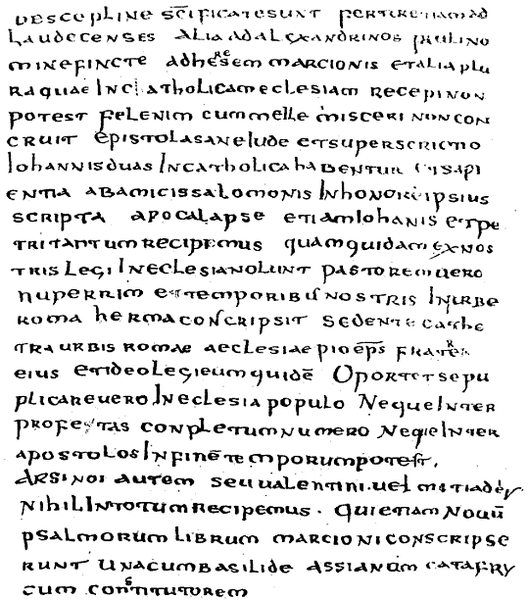 descepline sc̄ificate sunt fertur etiam ad
Laudecenses alia ad alexandrinos pauli no
mine fincte ad heresem marcionis et alia plu
ra quae In catholicam eclesiam recepi non
potest fel enim cum melle misceri non con
cruit epistola sane Iude et superscrictio
Iohannis duas In catholica habentur et sapi
entia ab amicis salomonis In honore ipsius
scripta apocalapse etiam Iohanis et pe
tri tantum recipemus quam quidam ex nos
tris legi In eclesia nolunt pastorem uero
nuperrim et temporibus nostris In urbe
roma herma conscripsit sedente cathe
tra urbis romae aeclesiae pio ep̄s frater
eius et ideo legi eum quidē Oportet se pu
plicare uero In eclesia populo Neque Inter
profestas conpletum numero Neqie Inter
apostolos In finē temporum potest.
Arsinoi autem seu ualentini. uel mitiadeis
nihil In totum recipemus. Qui etiam nouū
psalmorum librum marcioni conscripse
runt una cum basilide assianum catafry
cum constitutorem